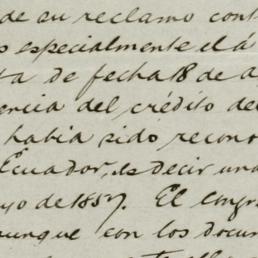 de su reclamo cont
s especialmente el á
ta de fecha 18 de a
encia del crédito de
había sido recono
Ecuador, es decir una
yo de 1857. El Congr
unque con los docum